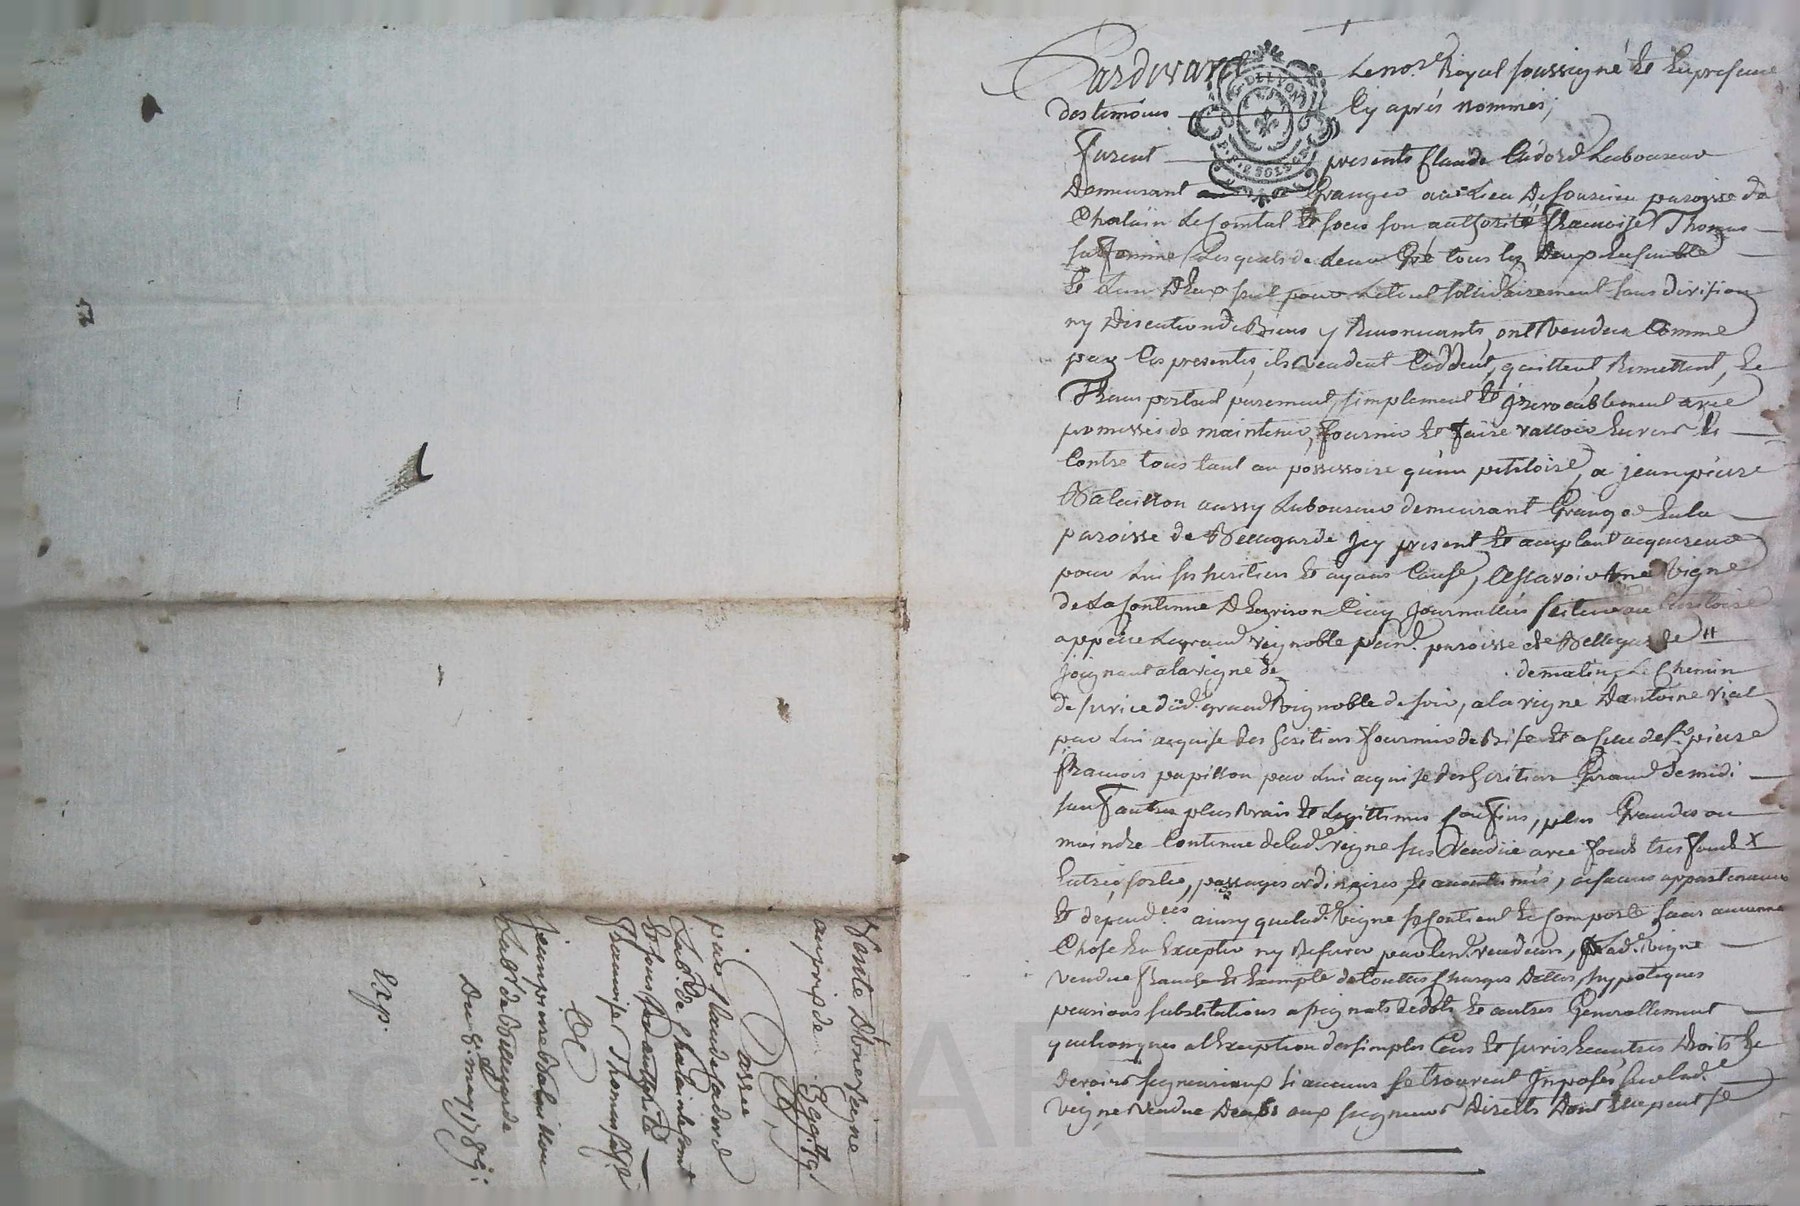 Pardevant Le no.re Royal soussigné Et En presence
des temoins Cy après nommés;
Furent presents Claude Cadord Laboureur
Demeurant Granger au Lieu De paroisse de
Chalain Le Comtal Et sous son authorité Francoise Thomas
sa Femme Lesquels de Leur Gré tous les Deux Ensemble
Et L'un D'Eux seul pour Le tout sollidairement sans division
ny Discution de Biens y Renoncants, ont Vendu Comme
par Ces presentes, ils Vendent Cèddent, quittent, Remettent, Et
Transportent purement, simplement Et jrrevocablement avec
promesses de maintenir, fournir Et faire valloir Envers Et
Contre tous tant au possessoire qu'au petitoire, a jean pierre
Balaillon aussy Laboureur demeurant Granger En la
paroisse de Bellegarde Jcy present Et acceptant acquereur
pour Lui ses heritiers Et ayans Cause, Assavoir Une Vigne
de La Contenue D'Environ Cinq Journallées scituée au territoire
appellé Le grand vignoble paroisse de Bellegarde
Joignant a la vigne de de matin, Le Chemin
de service dud. grand Vignoble de soir, a la vigne D'antoine vial
par Lui acquise des heritiers fournier de Bise Et a celle de S.r pierre
francois papillon par Lui acquise des heritiers Giraud de midi
sauf autres plus Vrais Et Legittimes Confins, plus Grande ou
moindre Contenue de Lad.e Vigne sus Vendüe avec fonds tres fonds
Entrée sortie, passages ordinaires, Et accoutumés, aisances appartenances
Et dépend.ces ainsy que lad.e Vigne se Contient Et Comporte sans aucunne
Chose En Excepter ny Reserver par Lesd. vendeurs, Lad.e Vigne
Vendue franche Et Exempte de touttes Charges Dettes, hypoteques
pensions substitutions assignats de dots Et autres Generallement
quelconques a L'Exception des simples Cens Et servis Et autres Droits Et
devoirs seigneuriaux si aucuns se trouvent Imposés sur lad.e
vigne Vendue Deubs aux seigneurs Directs Dont Elle peut se
Vente D'Une Vigne
au prix de
Passée
par Claude Cadord
Lab.r de Chalain le Comt
Et sous son authorité
Francoise Thomas sa fe
A
Jean pierre Balaillon
Lab.r de Bellegarde
Du 8. may 1789.
Exp.